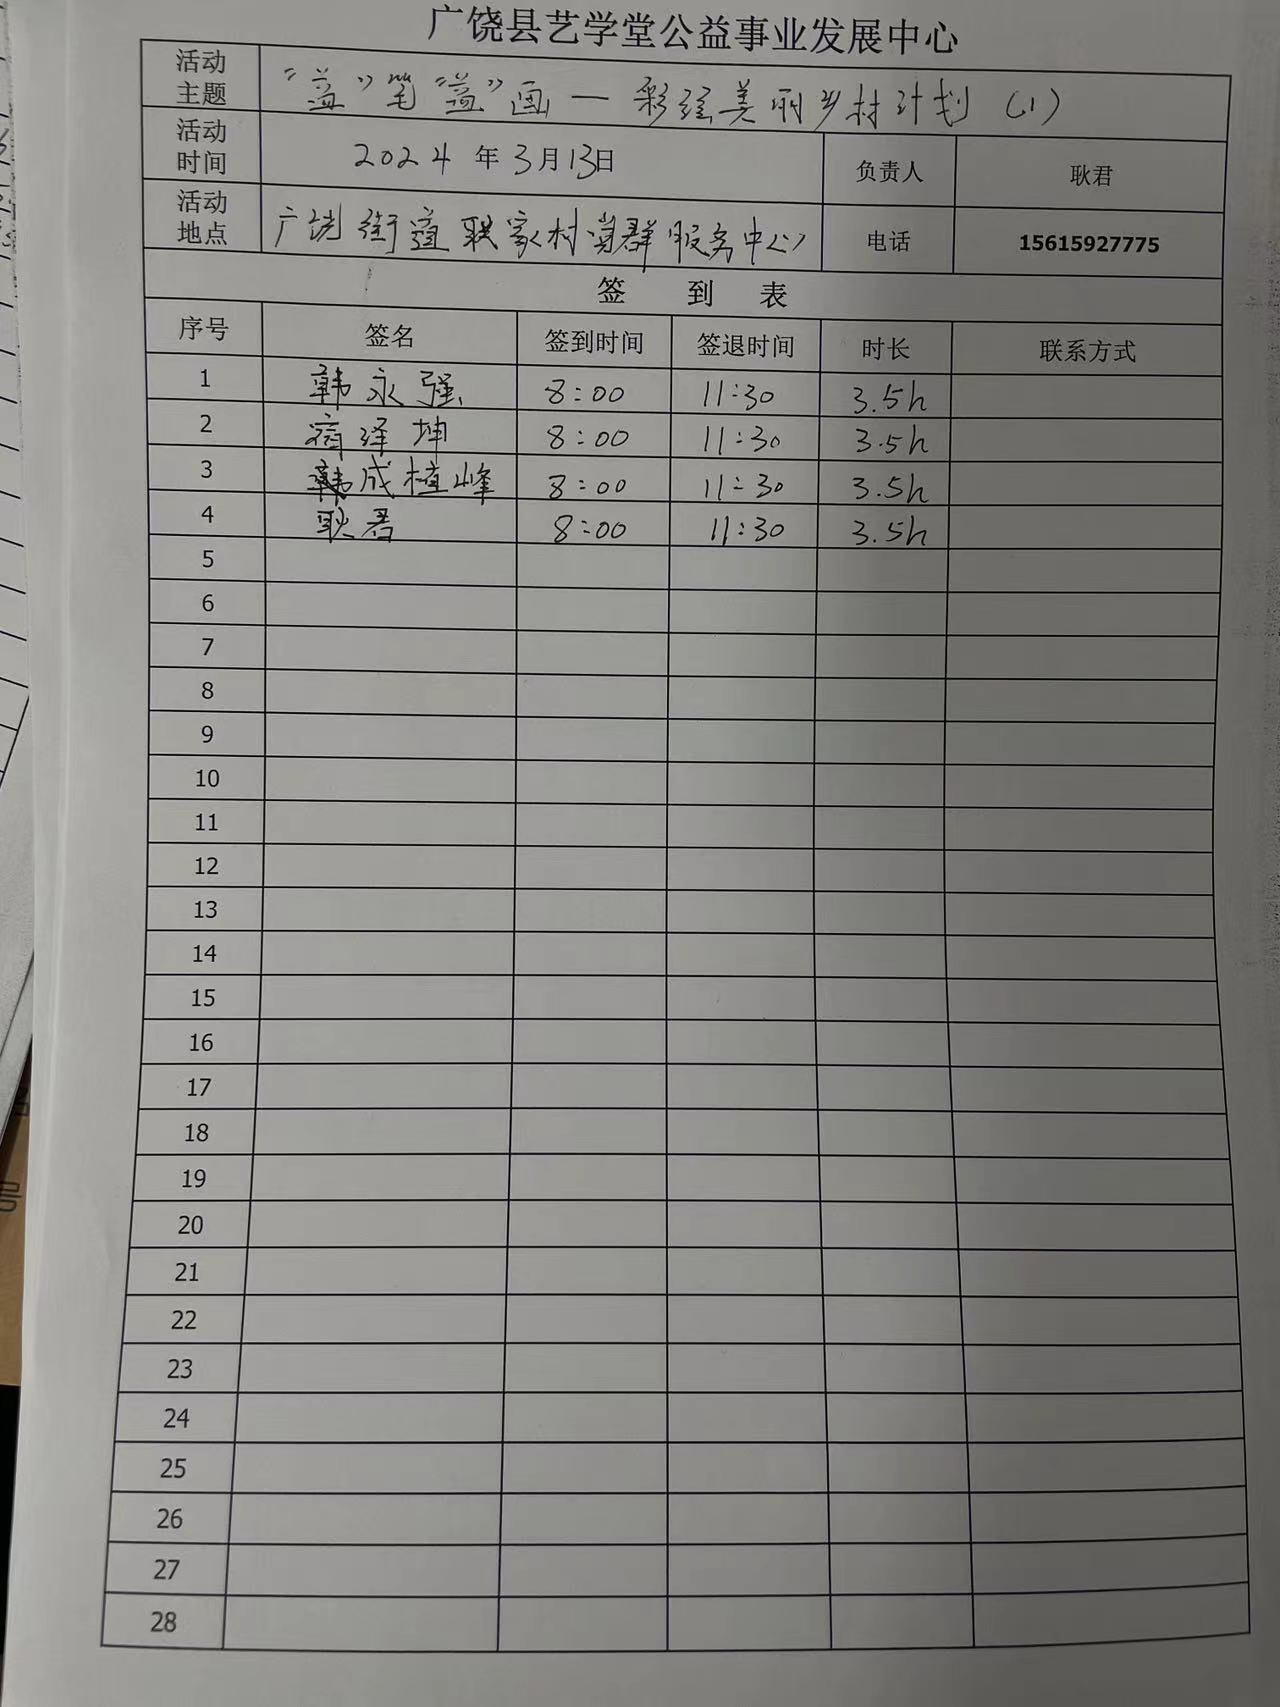 广饶县艺学堂公益事业发展中心
活动主题 “益”笔“益”画一彩绘美丽乡村计划（1）
活动时间 2024年3月13日 负责人 耿君
活动地点 广饶街道耿家村党群服务中心 电话 15615927775
签 到 表
序号 签名 签到时间 签退时间 时长 联系方式
1 韩永强 8:00 11:30 3.5h
2 宿泽坤 8:00 11:30 3.5h
3 成植峰 8:00 11:30 3.5h
4 耿君 8:00 11:30 3.5h
5
6
7
8
9
10
11
12
13
14
15
16
17
18
19
20
21
22
23
24
25
26
27
28